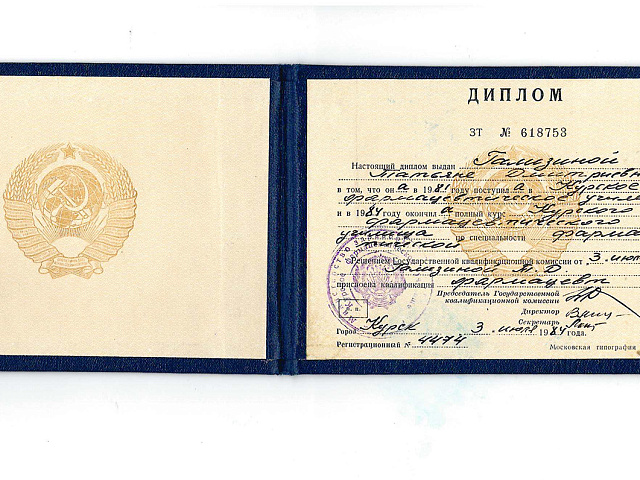 ДИПЛОМ
ЗТ № 618753
Настоящий диплом выдан Гамизиной
Татьяне Дмитриевн
в том, что он а в 1981 году поступил а в Курское
фармацевтическое учили
и в 1984 году окончил а полный курс Курского
фармацевтического
училища по специальности фарма
Решением Государственной квалификационной комиссии от 3 июл
Гамизиной Т. Д
присвоена квалификация фармацевт
Председатель Государственной
квалификационной комиссии
Директор
Секретарь
М. П.
Город Курск 3 июля 1984 года.
Регистрационный № 4474
Московская типография